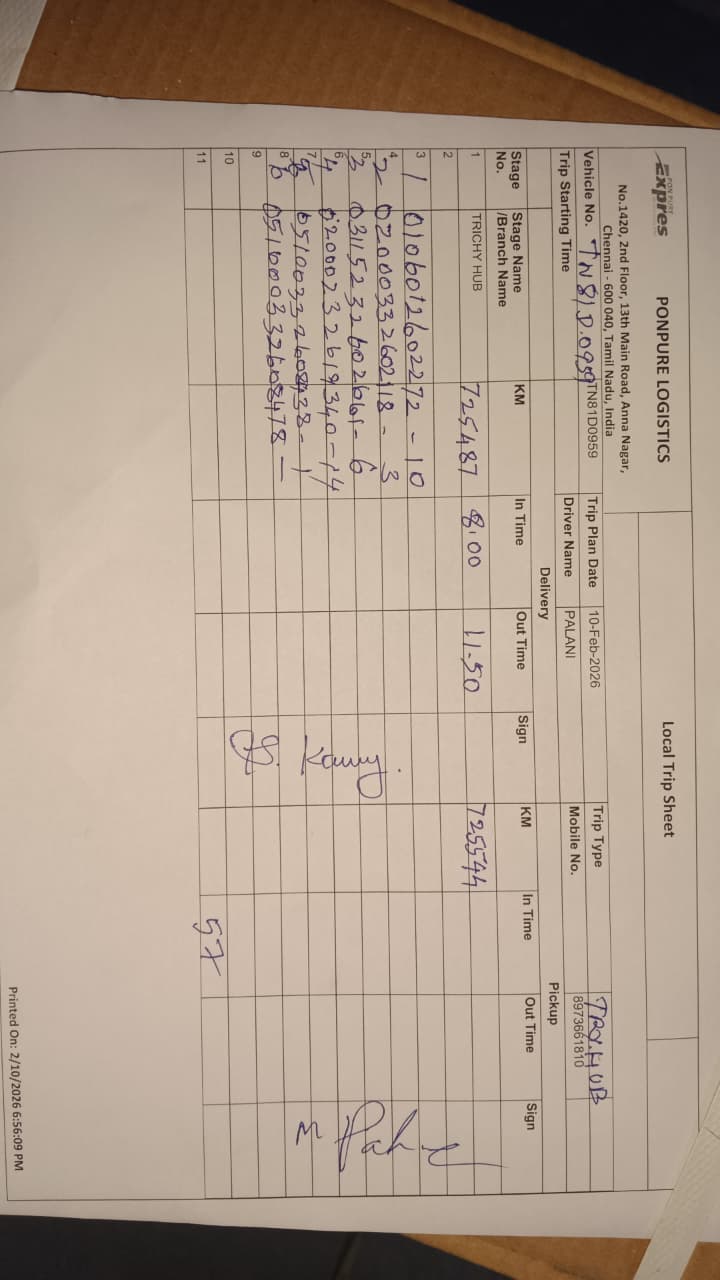 PON PURE
Expres
PONPURE LOGISTICS
Local Trip Sheet
No.1420, 2nd Floor, 13th Main Road, Anna Nagar,
Chennai - 600 040, Tamil Nadu, India
Vehicle No. TN 81 D.0959 TN81D0959 Trip Plan Date 10-Feb-2026 Trip Type TRY.HUB
Trip Starting Time Driver Name PALANI Mobile No. 8973661810
Delivery Pickup
Stage No. Stage Name /Branch Name KM In Time Out Time Sign KM In Time Out Time Sign
1 TRICHY HUB 725487 8.00 11.50 725544
2
3 1 0106012602272 - 10
4 2 02000332602118 - 3
5 3 03115232602661 - 6
6 4 02000232619340 - 14
7 5 05100332608438 - 1
8 6 051600332608478 -
9
10
11 57
Printed On: 2/10/2026 6:56:09 PM